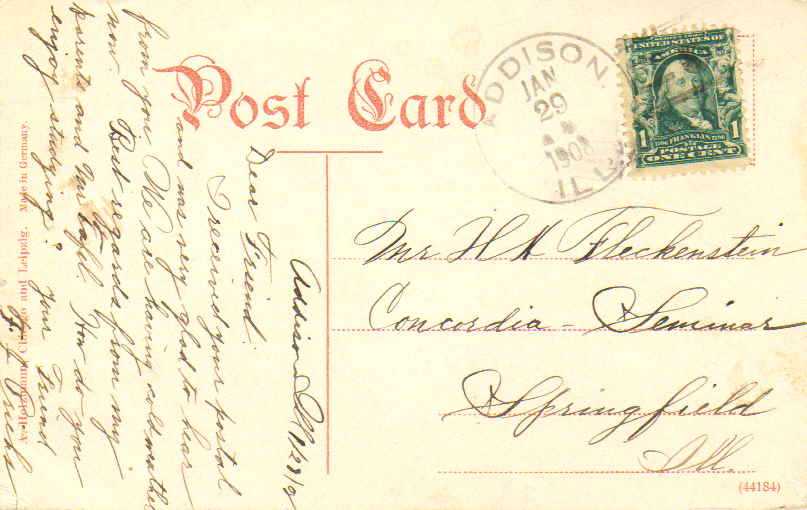 Post Card
ADDISON,
JAN
29
1908
ILL.
UNITED STATES OF
AMERICA
FRANKLIN
POSTAGE
1 ONE CENT 1
Mr H H Fleckenstein
Concordia - Seminar
Springfield
Ill.
(44184)
Addison Ill 1/28/
Dear Friend:
I received your postal
and was very glad to hear
from you. We are having cold weather
now. Best regards from my
parents and How do you
enjoy studying?
Your Friend
Chicago and Leipzig. Made in Germany.